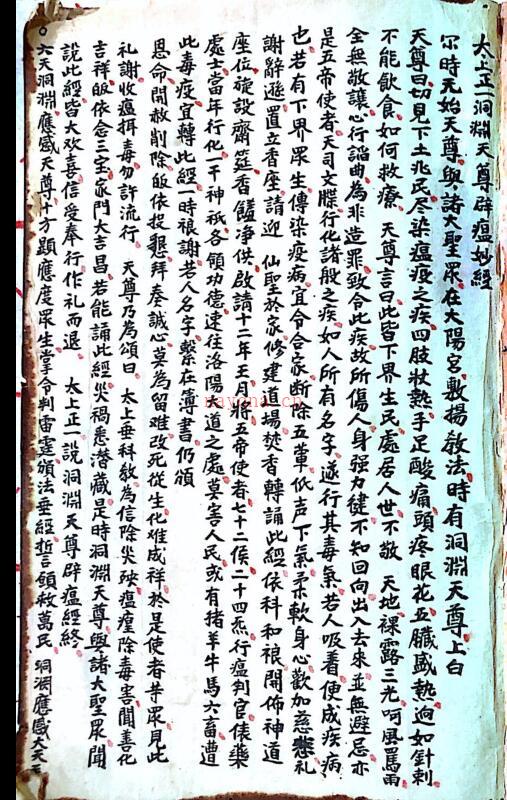 太上正一洞渊天尊辟瘟妙經
尔時元始天尊與諸大聖眾在大陽宮敷揚教法時有洞渊天尊上白
天尊曰切見下土兆民尽染瘟疫之疾四肢狀熱手足酸痛頭疼眼花五臓感熱逈如針刺
不能飲食如何救療 天尊言曰此皆下界生民處居人世不敬 天地裸露三光呵風罵雨
全無敬讓心行謟曲為非造罪致令此疾故所傷人身强力健不知回向出入去來並無避忌亦
是五帝使者天司文牒行化諸般之疾如人所有名字遂行其毒氣若人吸着便成疾病
也若有下界眾生傳染疫病宜令合家断除五葷低声下氣柔軟身心歡加慈悲礼
謝辭遜置立香座請迎 仙聖於家修建道場焚香轉誦此經依科和禓開佈神道
座位旋設齋筵香饈净供啟請十二年王月將五帝使者七十二侯二十四炁行瘟判官俵藥
處士當年行化一干神祇各領功德速往洛陽大道之處莫害人民或有猪羊牛馬六畜遭
此毒疫宜轉此經一時禓謝若人名字繫在薄書仍頒
恩命開赦削除皈依投懇拜奏誠心莫為留难改死従生化难成祥於是使者等眾見此
礼謝收瘟揖毒勿許流行 天尊乃為頌曰 太上垂科教為信除災殃瘟瘽除毒害聞善化
吉祥皈依念三宝家門大吉昌若能誦此經災禍悉潜藏是時洞渊天尊與諸大聖眾聞
說此經皆大欢喜信受奉行作礼而退 太上正一說洞渊天尊辟瘟經終
六天洞渊應感天尊十方顕應度眾生掌令判雷霆頒法垂經誓願救萬民 洞渊應感大天王
nayona.cn